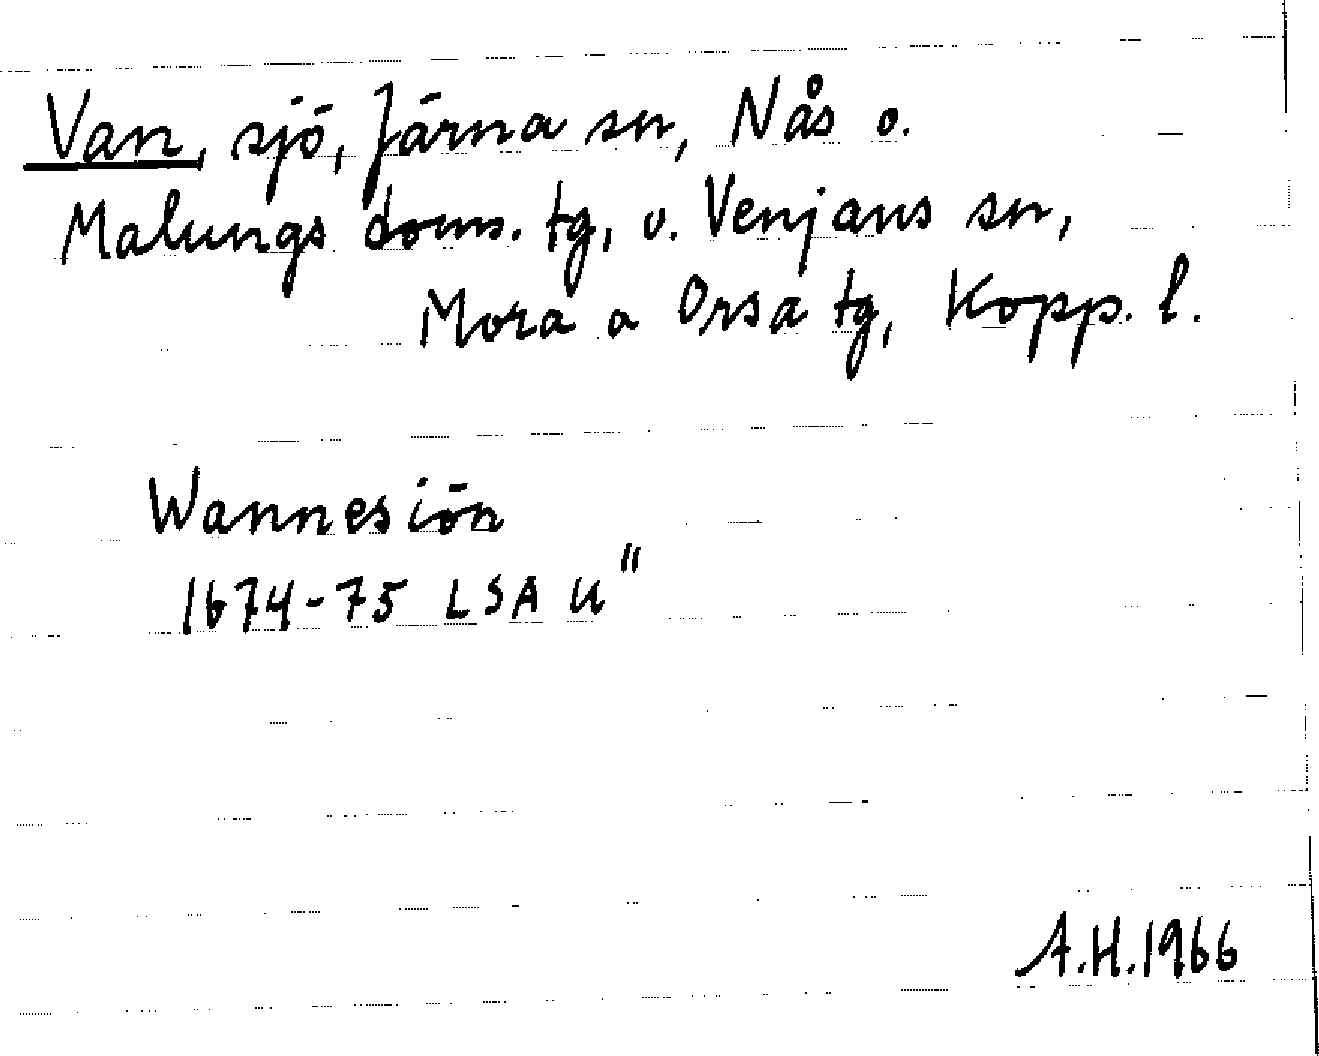 Van, sjö, Järna sn, Nås o.
Malungs doms. tg, o. Venjans sn,
Mora o Orsa tg, Kopp. l.
Wannesiön
1674-75 LSA U"
A.H.1966